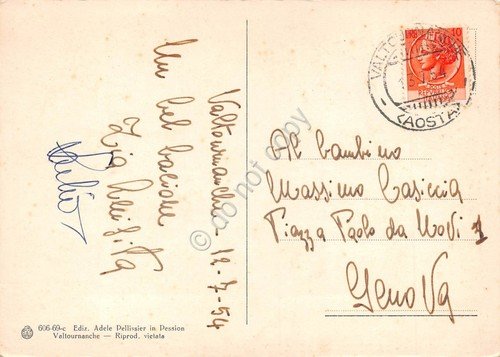 Valtournanche 12-7-54
Un bel bacione
Zia
606-69-c Ediz. Adele Pellissier in Pession
Valtournanche — Riprod. vietata
10
VALTOURNANCHE
(AOSTA)
Al bambino
Massimo Casiccia
Piazza Paolo da Novi 1
Genova
do not copy